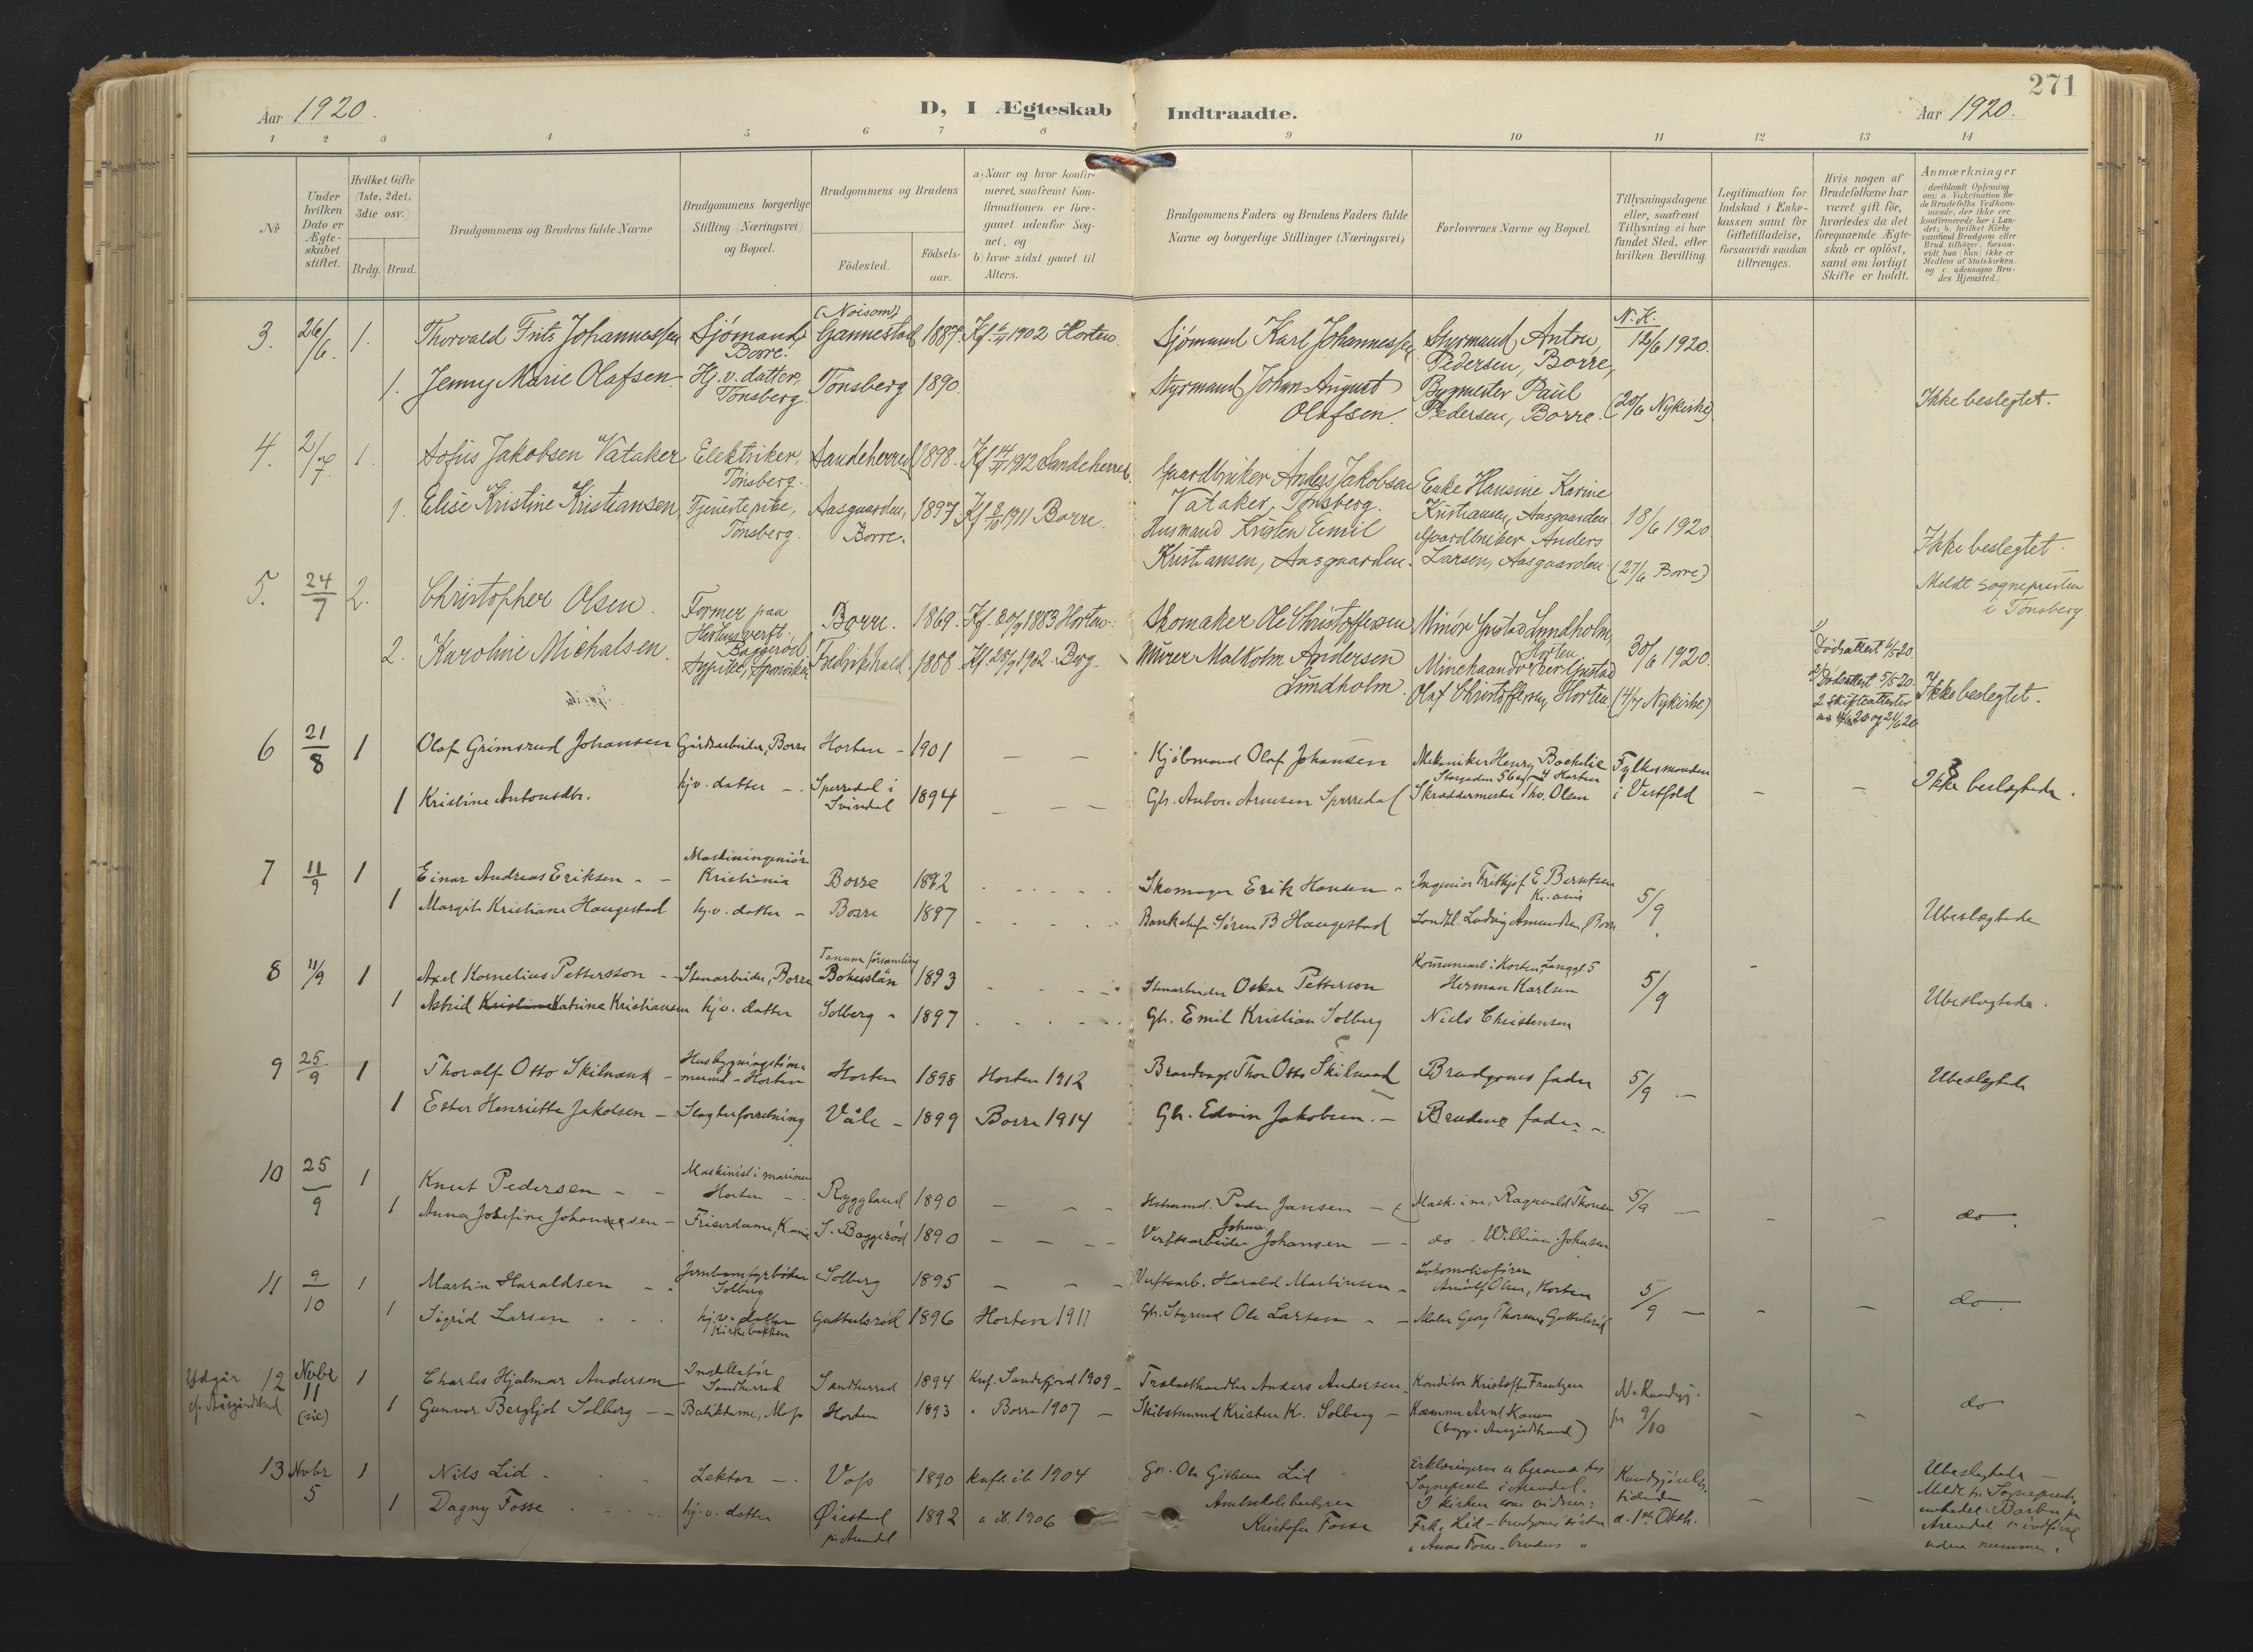 271
Aar 1920.
D, I Ægteskab Indtraadte.
Aar 1920.
1 2 3 4 5 6 7 8 9 10 11 12 13 14
No
Under hvilken Dato er Ægteskabet stiftet.
Hvilket Gifte (1ste, 2det, 3die osv.)
Brdg. Brud.
Brudgommens og Brudens fulde Navne
Brudgommens borgerlige Stilling (Næringsvei) og Bopæl.
Brudgommens og Brudens
Födested.
Födselsaar.
a) Naar og hvor konfirmeret, saafremt Konfirmationen er foregaaet udenfor Sognet, og
b) hvor sidst gaaet til Alters.
Brudgommens Faders og Brudens Faders fulde Navne og borgerlige Stillinger (Næringsvei)
Forlovernes Navne og Bopæl.
Tillysningsdagene eller, saafremt Tillysning ei har fundet Sted, efter hvilken Bevilling.
Legitimation for Indskud i Enkekassen samt for Giftetilladelse, forsaavidt saadan tiltrænges.
Hvis nogen af Brudefolkene har været gift för, hvorledes da det foregaaende Ægteskab er oplöst, samt om lovligt Skifte er holdt.
Anmærkninger
(deriblandt Oplysning om: a. Vakcination for de Brudefolks Vedkommende, der ikke ere konfirmerede her i Landet; b. hvilket Kirkesamfund Brudgom eller Brud tilhører, forsaavidt han (hun) ikke er Medlem af Statskirken, og c. udensogns Brudes Hjemsted.)
3. 26/6. 1. Thorvald Frits Johannessen Sjømand, Borre. (Noisom) Gannestad 1887. Kf. 1902 Horten. Sjømand Karl Johannessen Styrmand Anton Pedersen, Borre, N.K. 12/6 1920.
1. Jenny Marie Olafsen. Hj.v. datter, Tönsberg. Tönsberg 1890. Styrmand Johan August Olafsen. Bygmester Paul Pedersen, Borre. (20/6 Nykirke) Ikke beslegtet.
4. 2/7. 1. Sofus Jakobsen Vataker Elektriker, Tönsberg. Sandeherred 1898. Kf 1912 Sandeherred. Gaardbruker Anders Jakobsen Vataker, Tönsberg. Enke Hansine Karine Kristiansen, Aasgaarden 18/6 1920
1. Elise Kristine Kristiansen, Tjenestepike, Tönsberg. Aasgaarden, Borre. 1897. Kf 8/10 1911 Borre. Husmand Kristen Emil Kristiansen, Aasgaarden. Gaardbruker Anders Larsen, Aasgaarden. (27/6 Borre) Ikke beslegtet.
5. 24/7 2. Christopher Olsen. Former paa Hortens verft. Baggerød Borre. 1869. Kf. 30/9 1883 Horten. Skomaker Ole Christoffersen Minör Gustav Lundholm, Horten 30/6 1920. Meldt sognepresten i Tönsberg
2. Karoline Michalsen. Fredrikshald. 1888 Kf. 28/9 1902. Berg. Murer Malkolm Andersen Lundholm. Olaf Christoffersen, Horten. (4/7 Nykirke) 1) Dødsattest 4/5 20. 2) Dødsattest 5/5 20. 2 skifteattester Ikke beslegtet.
6 21/8 1 Olaf Grimsrud Johansen Gårdsarbeider, Borre Horten - 1901 - - Kjøbmand Olaf Johansen Mekaniker Henry Boehlie Horten Fylkesmanden i Vestfold
1 Kristine Antonsdtr. hj.v. datter - Sperredal i Svindal 1894 - - - Gbr. Anton Arnesen Sperredal Skræddermester Tho. Olsen - - Ikke beslægtede.
7 11/9 1 Einar Andreas Eriksen - - Maskiningeniör Kristiania Borre 1892 Skomager Erik Hansen - Ingeniør Frithjof E Berntsen Kr.ania 5/9
1 Margit Kristiane Haugestad hj.v. datter - Borre 1897 Bankchef Sören B Haugestad Landh. Ludvig Amundsen, Borre Ubeslægtede
8 11/9 1 Axel Kornelius Pettersson - Stenarbeider, Borre Tanums församling Bohuslän 1893 Stenarbeider Oskar Petterson Herman Karlsen 5/9 -
1 Astrid Katrine Kristiansen hj.v. datter Solberg - 1897 Gbr. Emil Kristian Solberg Niels Christensen Ubeslægtede.
9 25/9 1 Thoralf Otto Skilnand - Horten Horten 1898 Horten 1912 Brandvagt Thor Otto Skilnand Brudgoms fader 5/9 - Ubeslægtede
1 Ester Henriette Jakobsen - Slagterforretning Våle - 1899 Borre 1914 Gbr. Edvin Jakobsen. - Brudens fader -
10 25/9 1 Knut Pedersen - - Maskinist i marinen Horten - Ryggland 1890 - - - Peder Jansen - Mask. i m. Ragnvald Thorsen 5/9 - - - do.
1 Anna Josefine Johannesen - Friserdame, K.ania S. Baggerød 1890 - - - Verftsarbeider Johan Johansen - - do - William Johnsen
11 9/10 1 Martin Haraldsen - - Jernbanefyrbøter Solberg Solberg 1895 - - - Verftsarb. Harald Martinsen - Lokomotivfører Arnulf Olsen, Horten 5/9 - - - do.
1 Sigrid Larsen hj.v. datter Kirkebakken Guttulsrød 1896 Horten 1911 Gbr. Styrmd Ole Larsen - - Maler Georg Thorsen, Guttulsrød
Udgår cf. Åsgårdstrand 12 Novbr 11 (sic) 1 Charles Hjalmar Anderson Installatør Sandherred Sandherred 1894 Knf. Sandefjord 1909 - Trælasthandler Anders Andersen - Konditor Kristoffer Frantzen N. Kundgj. fr 9/10
1 Gunvor Bergljot Solberg - - Batikdame, Moss Horten 1893 " Borre 1907 - Skibstmmd Kristen K. Solberg - Kæmner Arnt Hansen (begge Aasgårdstrand) - - do
13 Novbr 5 1 Nils Lid Lektor - Voss 1890 knf. ib 1904 Gbr. Ola Gitlesen Lid Erklæringerne er beroende hos Sogneprestn i Arendal. I kirken som vidner: Kundgjörelsestidende d. 1ste Oktb. - - Ubeslægtede -
1 Dagny Fosse hj.v. datter Øiestad pr Arendal 1892 " ib. 1906 Amtsskolebestyrer Kristofer Fosse Frk. Lid - brudgoms søster " Anna Fosse - brudens " Meldt fr. Sogneprestembedet i Barbu pr Arendal indført uden nummer.